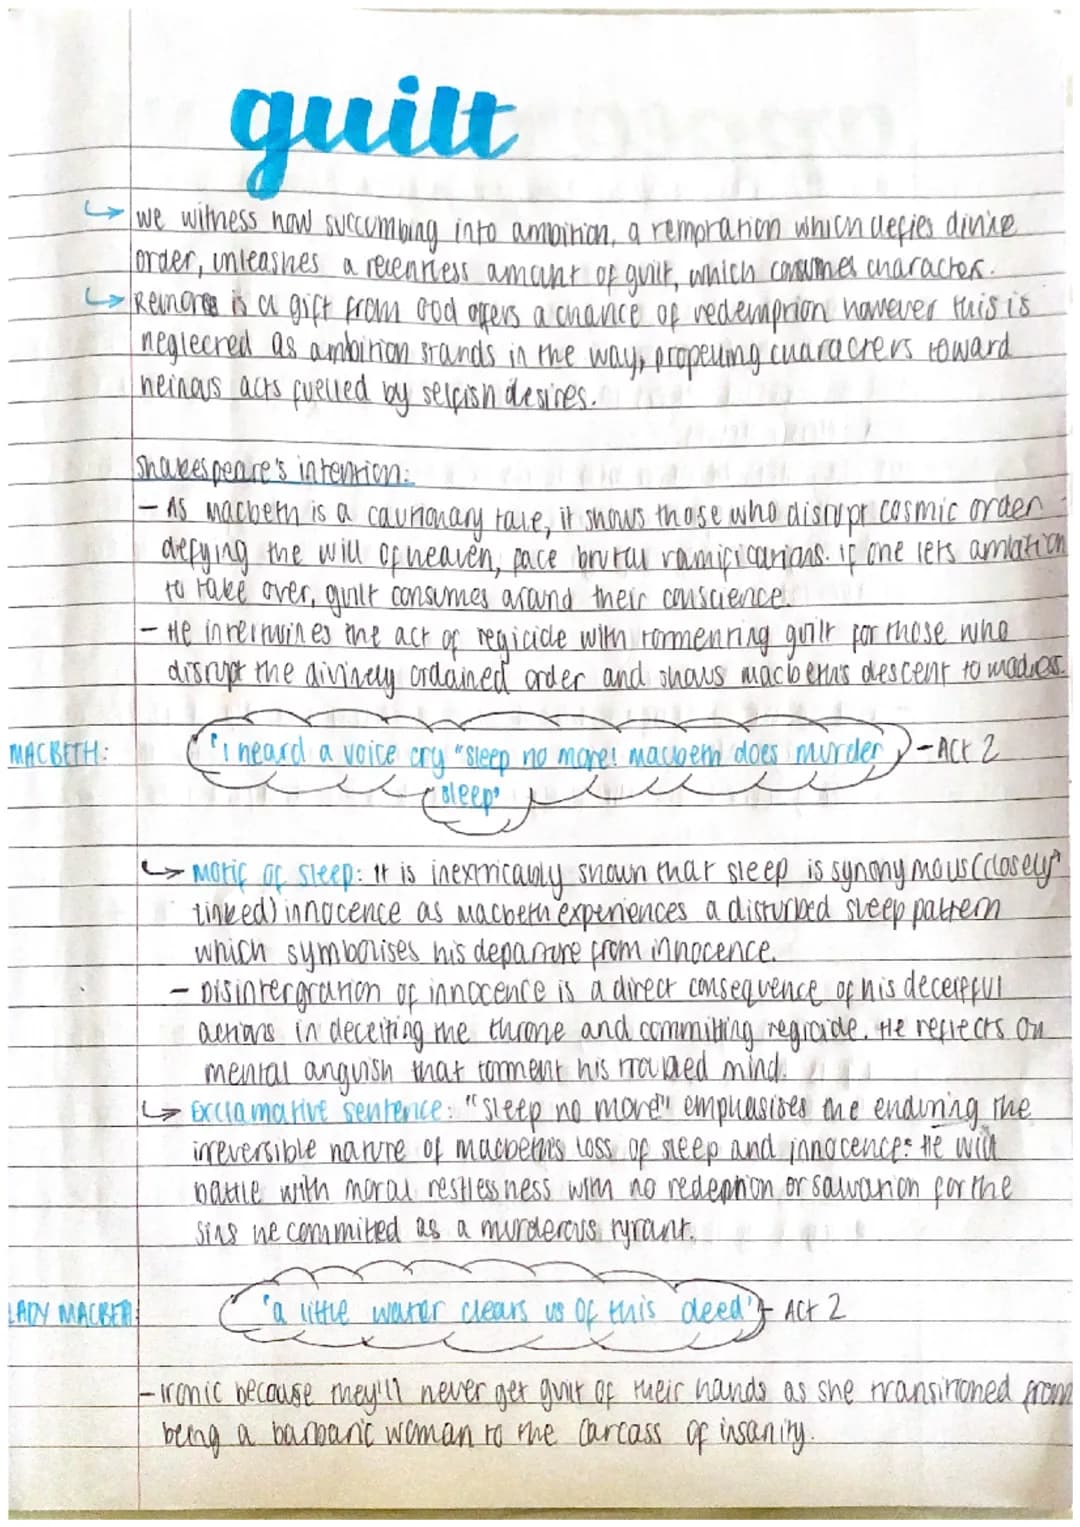 guilt
↳ we witness how succumbing into ambition, a temptation which defies divine
order, unleashes a relentless amount of guilt, which consumes character.
↳ Remorse is a gift from God offers a chance of redemption however this is
neglected as ambition stands in the way, propelling characters toward
heinous acts fuelled by selfish desires.
Shakespeare's intention:
- As macbeth is a cautionary tale, it shows those who disrupt cosmic order
defying the will of heaven, face brutal ramifications. if one lets ambition
to take over, guilt consumes around their conscience.
- He intertwines the act of regicide with tormenting guilt for those who
disrupt the divinely ordained order and shows macbeth's descent to madness.
MACBETH: 'I heard a voice cry "sleep no more! macbeth does murder - Act 2
sleep'
↳ Motif of sleep: It is inextricably shown that sleep is synonymous (closely
linked) innocence as Macbeth experiences a disturbed sleep pattern
which symbolises his departure from innocence.
- Disintergration of innocence is a direct consequence of his deceitful
actions in deceiting the throne and committing regicide. He reflects on
mental anguish that torment his troubled mind.
↳ Exclamative sentence: "sleep no more!" emphasises the enduring the
irreversible nature of macbeth's loss of sleep and innocence: He will
battle with moral restlessness with no redeption or salvation for the
sins he commited as a murderous tyrant.
LADY MACBETH: 'a little water clears us of this deed' - Act 2
- ironic because they'll never get guilt of their hands as she transitioned from
being a barbaric woman to the carcass of insanity.